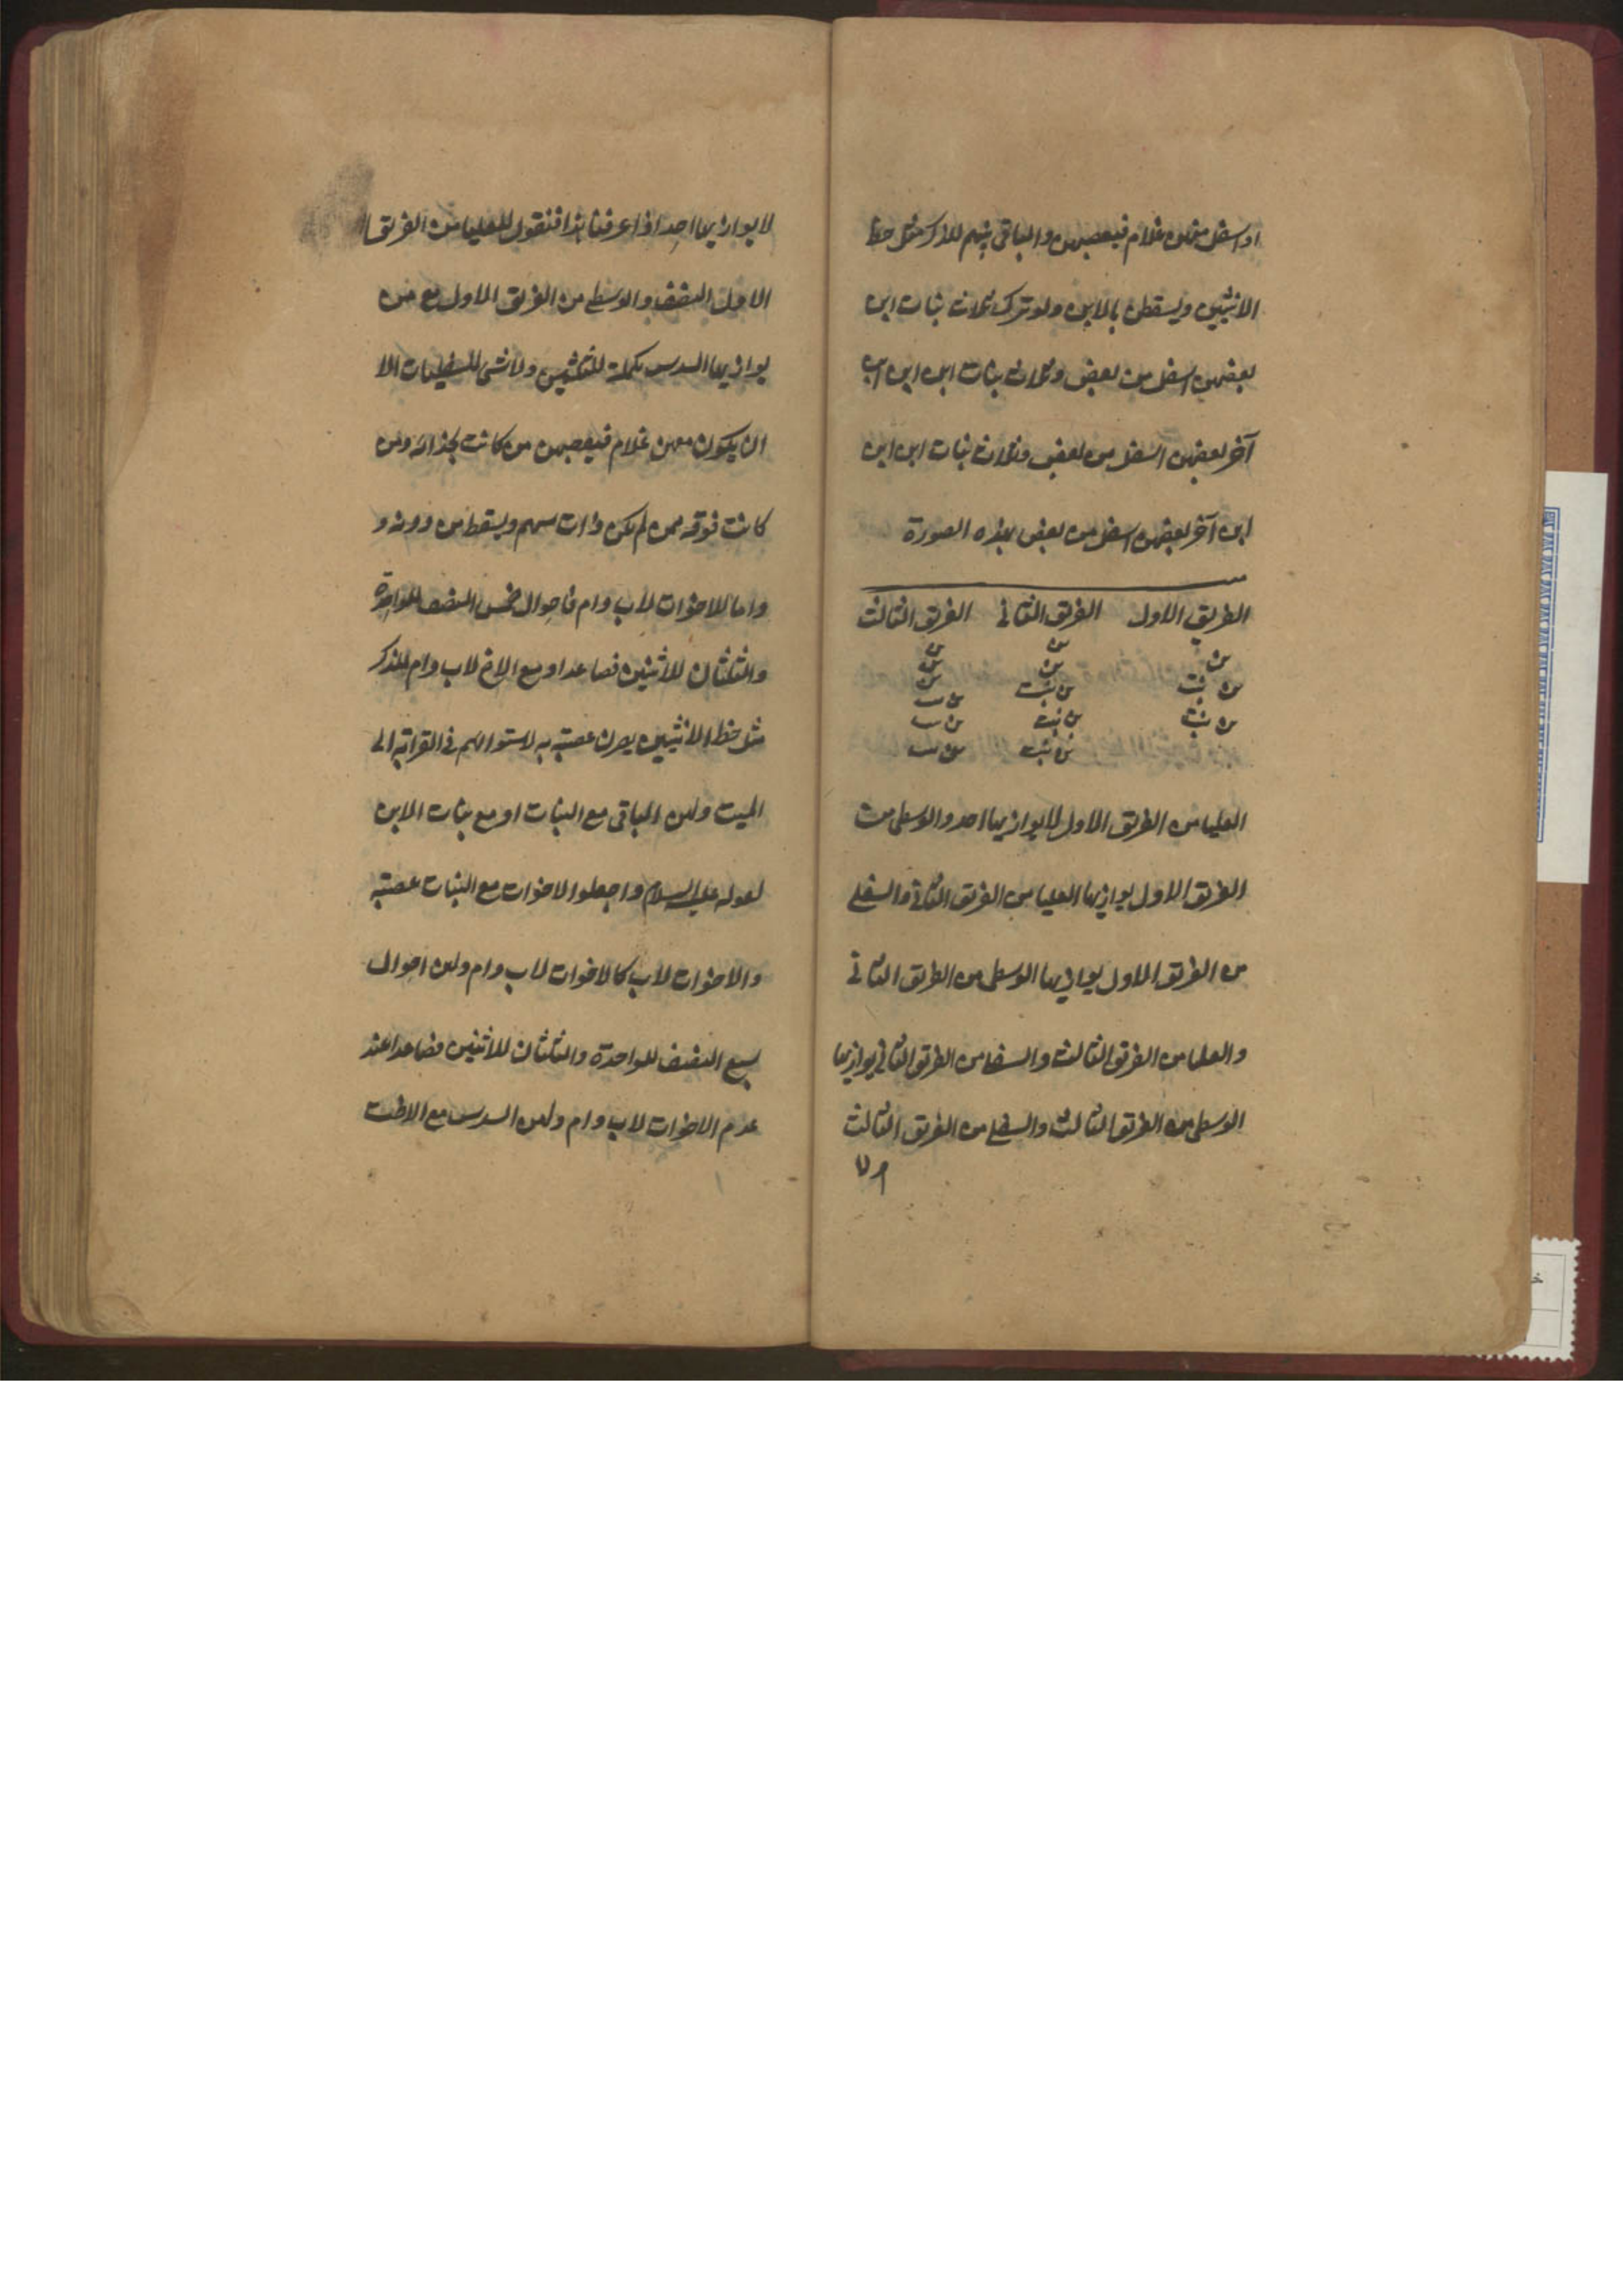 او اسفل منهن غلام فيعصبهن والباقى بينهم للذكر مثل حظ
الانثيين ويسقطن بالابن ولو ترك ثلاث بنات ابن
بعضهن اسفل من بعض وثلاث بنات ابن ابن
آخر بعضهن اسفل من بعض وثلاث بنات ابن ابن
ابن آخر بعضهن اسفل من بعض بهذه الصورة
الفريق الاول الفريق الثانى الفريق الثالث
بن بن
بن بن بن
بن بنت بن بنت بن
بن بنت بن بنت بن ست
بن بنت بن ست
العليا من الفريق الاول لا يوازيها احد والوسطى من
الفريق الاول يوازيها العليا من الفريق الثانى والسفلى
من الفريق الاول يوازيها الوسطى من الفريق الثانى
والعليا من الفريق الثالث والسفلى من الفريق الثانى يوازيها
الوسطى من الفريق الثالث والسفلى من الفريق الثالث
لا يوازيها احد اذا عرفنا هذا فنقول للعليا من الفريق
الاول النصف والوسطى من الفريق الاول مع من
يوازيها السدس تكملة للثلثين ولا شى للسفليات الا
ان يكون معهن غلام فيعصبهن من كانت بحذائه ومن
كانت فوقه ممن لم يكن ذات سهم ويسقط من دونه و
واما للاخوات لاب وام فاحوال خمس النصف للواحدة
والثلثان للاثنين فصاعدا ومع الاخ لاب وام للذكر
مثل حظ الانثيين يصرن عصبة به لاستوائهم فى القرابة الى
الميت ولهن الباقى مع البنات او مع بنات الابن
لقوله عليه السلام واجعلوا الاخوات مع البنات عصبة
والاخوات لاب كالاخوات لاب وام ولهن احوال
سبع النصف للواحدة والثلثان للاثنين فصاعدا عند
عدم الاخوات لاب وام ولهن السدس مع الاخت